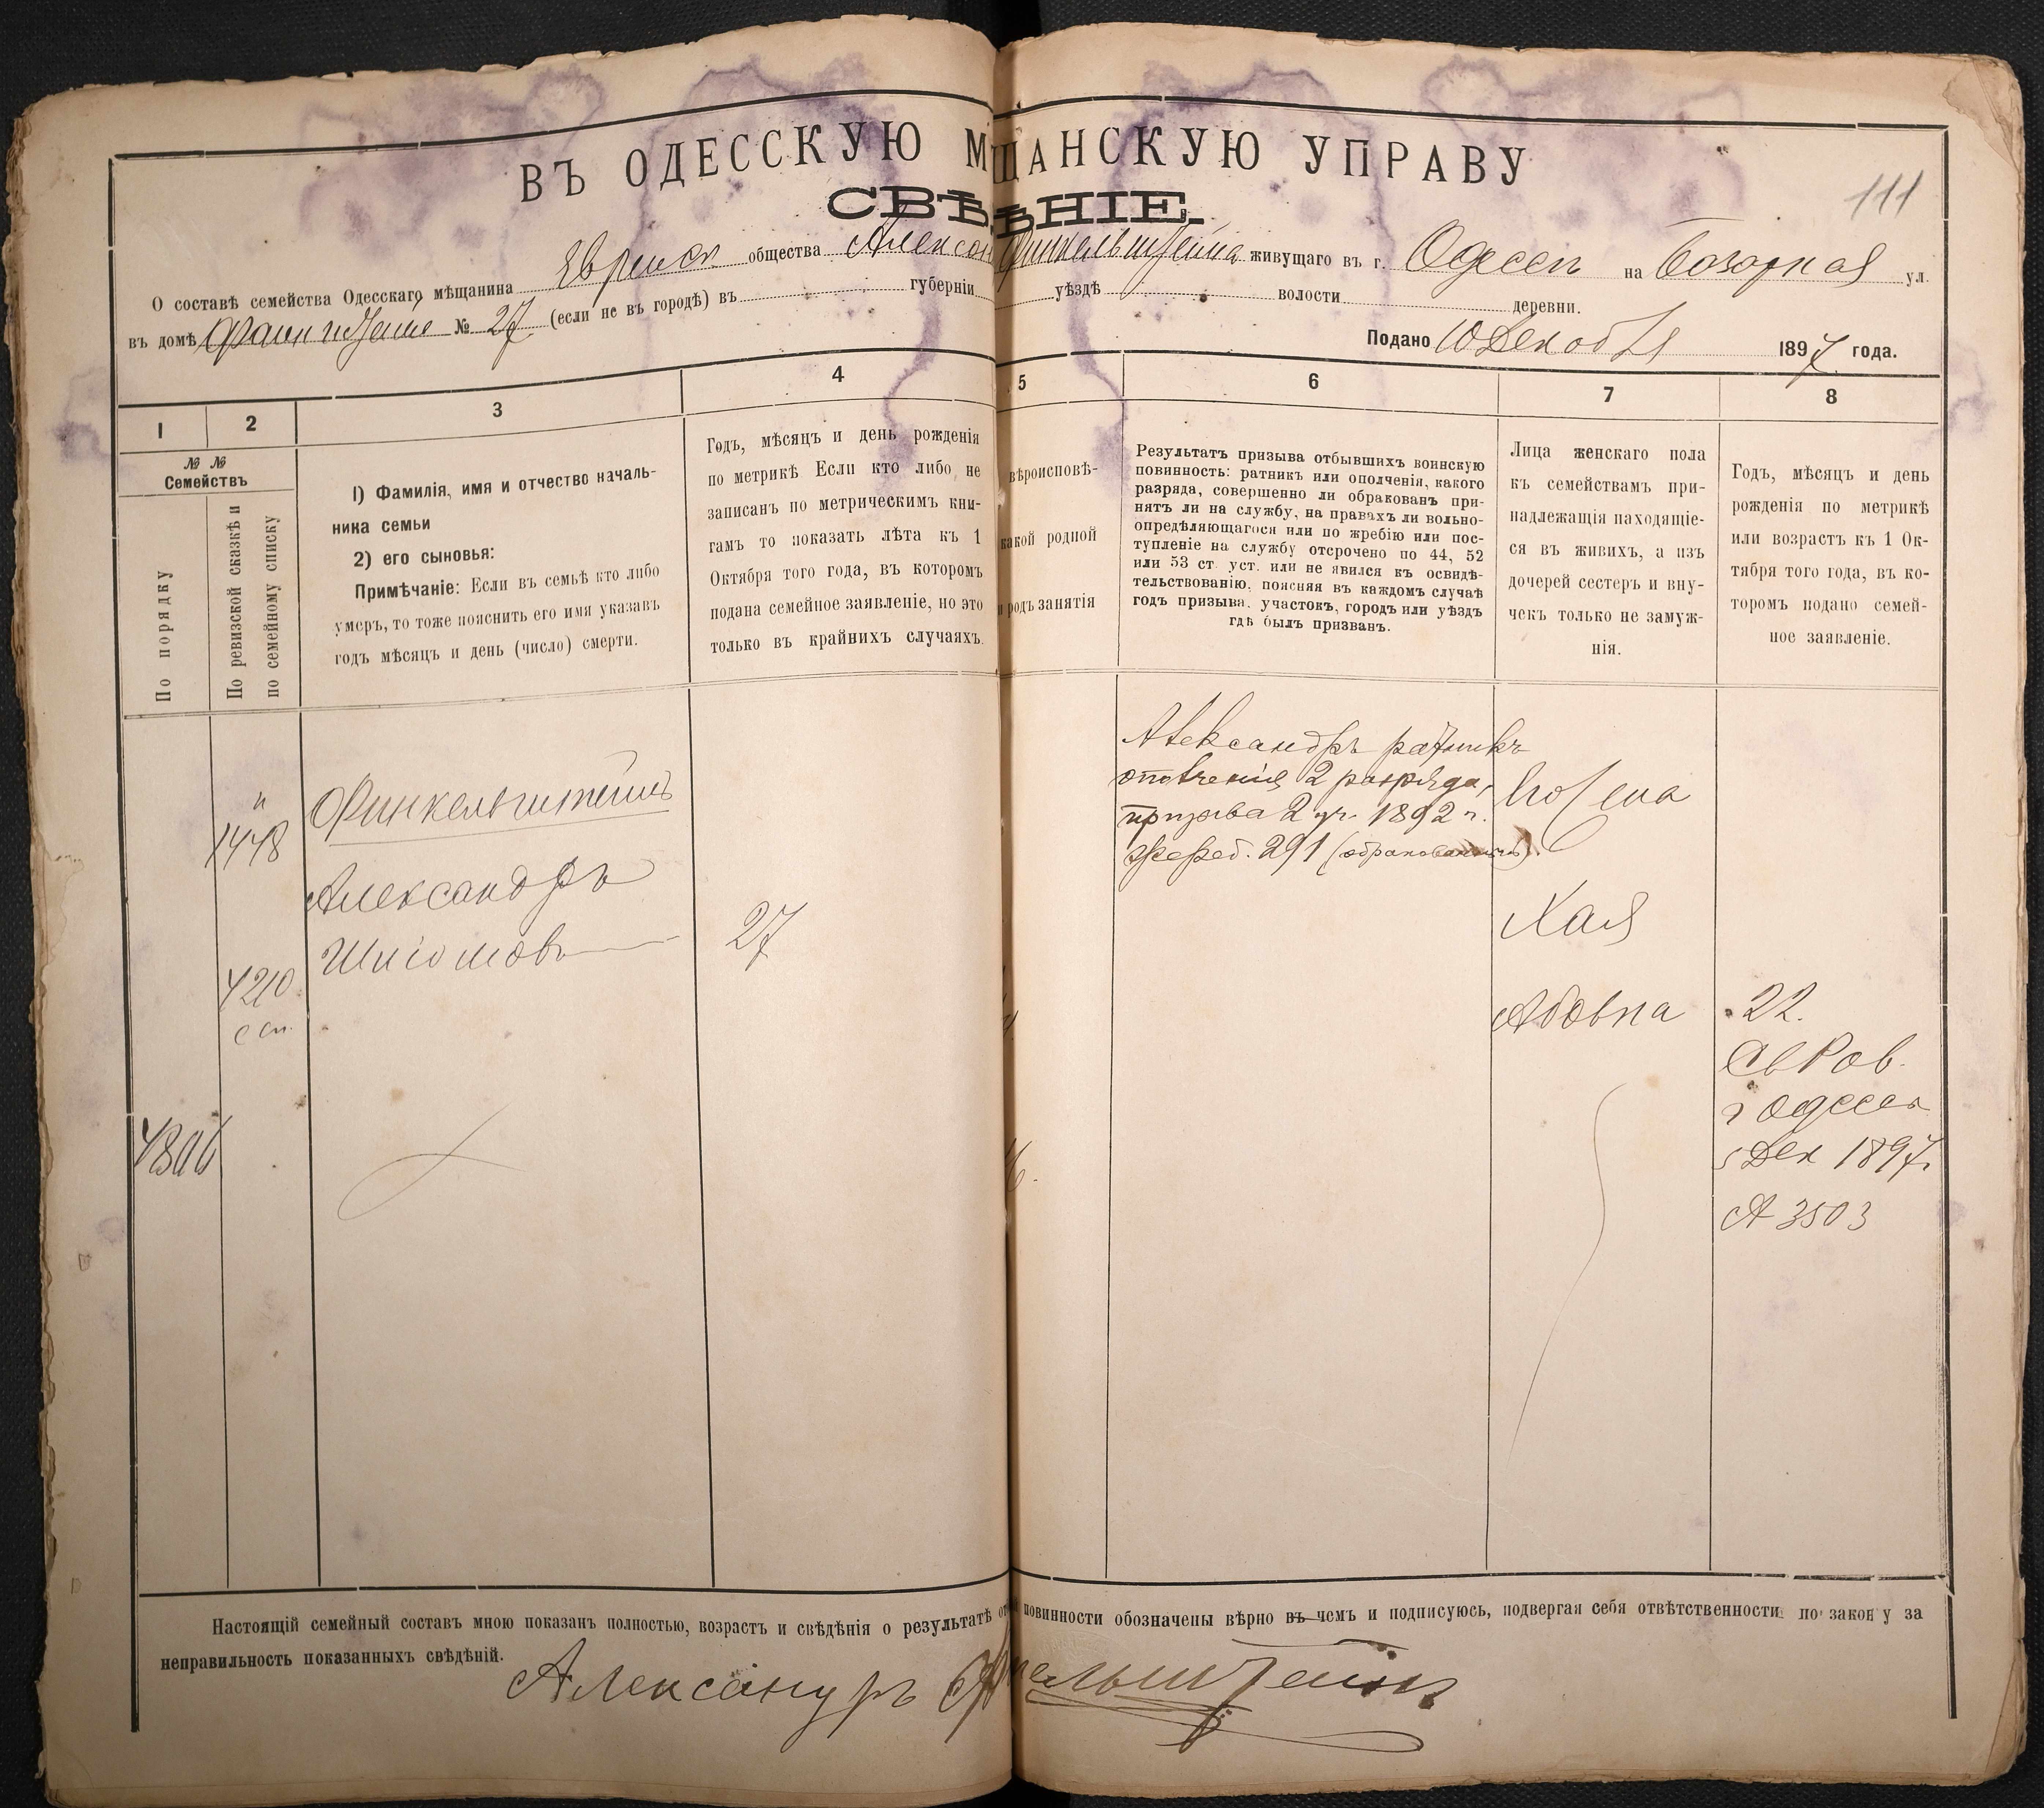 111
ВЪ ОДЕССКУЮ М ЩАНСКУЮ УПРАВУ
СВѢ ѢНІЕ.
О составѣ семейства Одесскаго мѣщанина Еврейск общества Алексан Финкельштейна живущаго въ г. Одессѣ на Базарная ул.
въ домѣ № 27 (если не въ городѣ) въ губерніи уѣздѣ волости деревни.
Подано 10 Декаб 1897 года.
1 2 3 4 5 6 7 8
№ № Семействъ
По порядку
По ревизской сказкѣ и
по семейному списку
1) Фамилія, имя и отчество началь-
ника семьи
2) его сыновья:
Примѣчаніе: Если въ семьѣ кто либо
умеръ, то тоже пояснить его имя указавъ
годъ мѣсяцъ и день (число) смерти.
Годъ, мѣсяцъ и день рожденія
по метрикѣ Если кто либо не
записанъ по метрическимъ кни-
гамъ то показать лѣта къ 1
Октября того года, въ которомъ
подана семейное заявленіе, но это
только въ крайнихъ случаяхъ.
вѣроисповѣ-
какой родной
и родъ занятія
Результатъ призыва отбывшихъ воинскую
повинность: ратникъ или ополченія, какого
разряда, совершенно ли обракованъ при-
нятъ ли на службу, на правахъ ли вольно-
опредѣляющагося или по жребію или пос-
тупленіе на службу отсрочено по 44, 52
или 53 ст. уст. или не явился къ освидѣ-
тельствованію, поясняя въ каждомъ случаѣ
годъ призыва, участокъ, городъ или уѣздъ
гдѣ былъ призванъ.
Лица женскаго пола
къ семействамъ при-
надлежащія находящіе-
ся въ живихъ, а изъ
дочерей сестеръ и вну-
чекъ только не замуж-
нія.
Годъ, мѣсяцъ и день
рожденія по метрикѣ
или возрастъ къ 1 Ок-
тября того года, въ ко-
торомъ подано семей-
ное заявленіе.
Финкельштейнъ
Александръ
27
4210
с сп.
Александръ ратникъ
ополченія 2 разряда,
призыва 2 уч. 1892 г.
жереб. 291 (обракованный).
Его жена
Хая
Абовна
22.
Св Рав.
г Одессы
5 Дек 1897 г
А 3503
Настоящій семейный составъ мною показанъ полностью, возрастъ и свѣдѣнія о результатѣ от повинности обозначены вѣрно въ чемъ и подписуюсь, подвергая себя отвѣтственности по закону за
неправильность показанныхъ свѣдѣній.